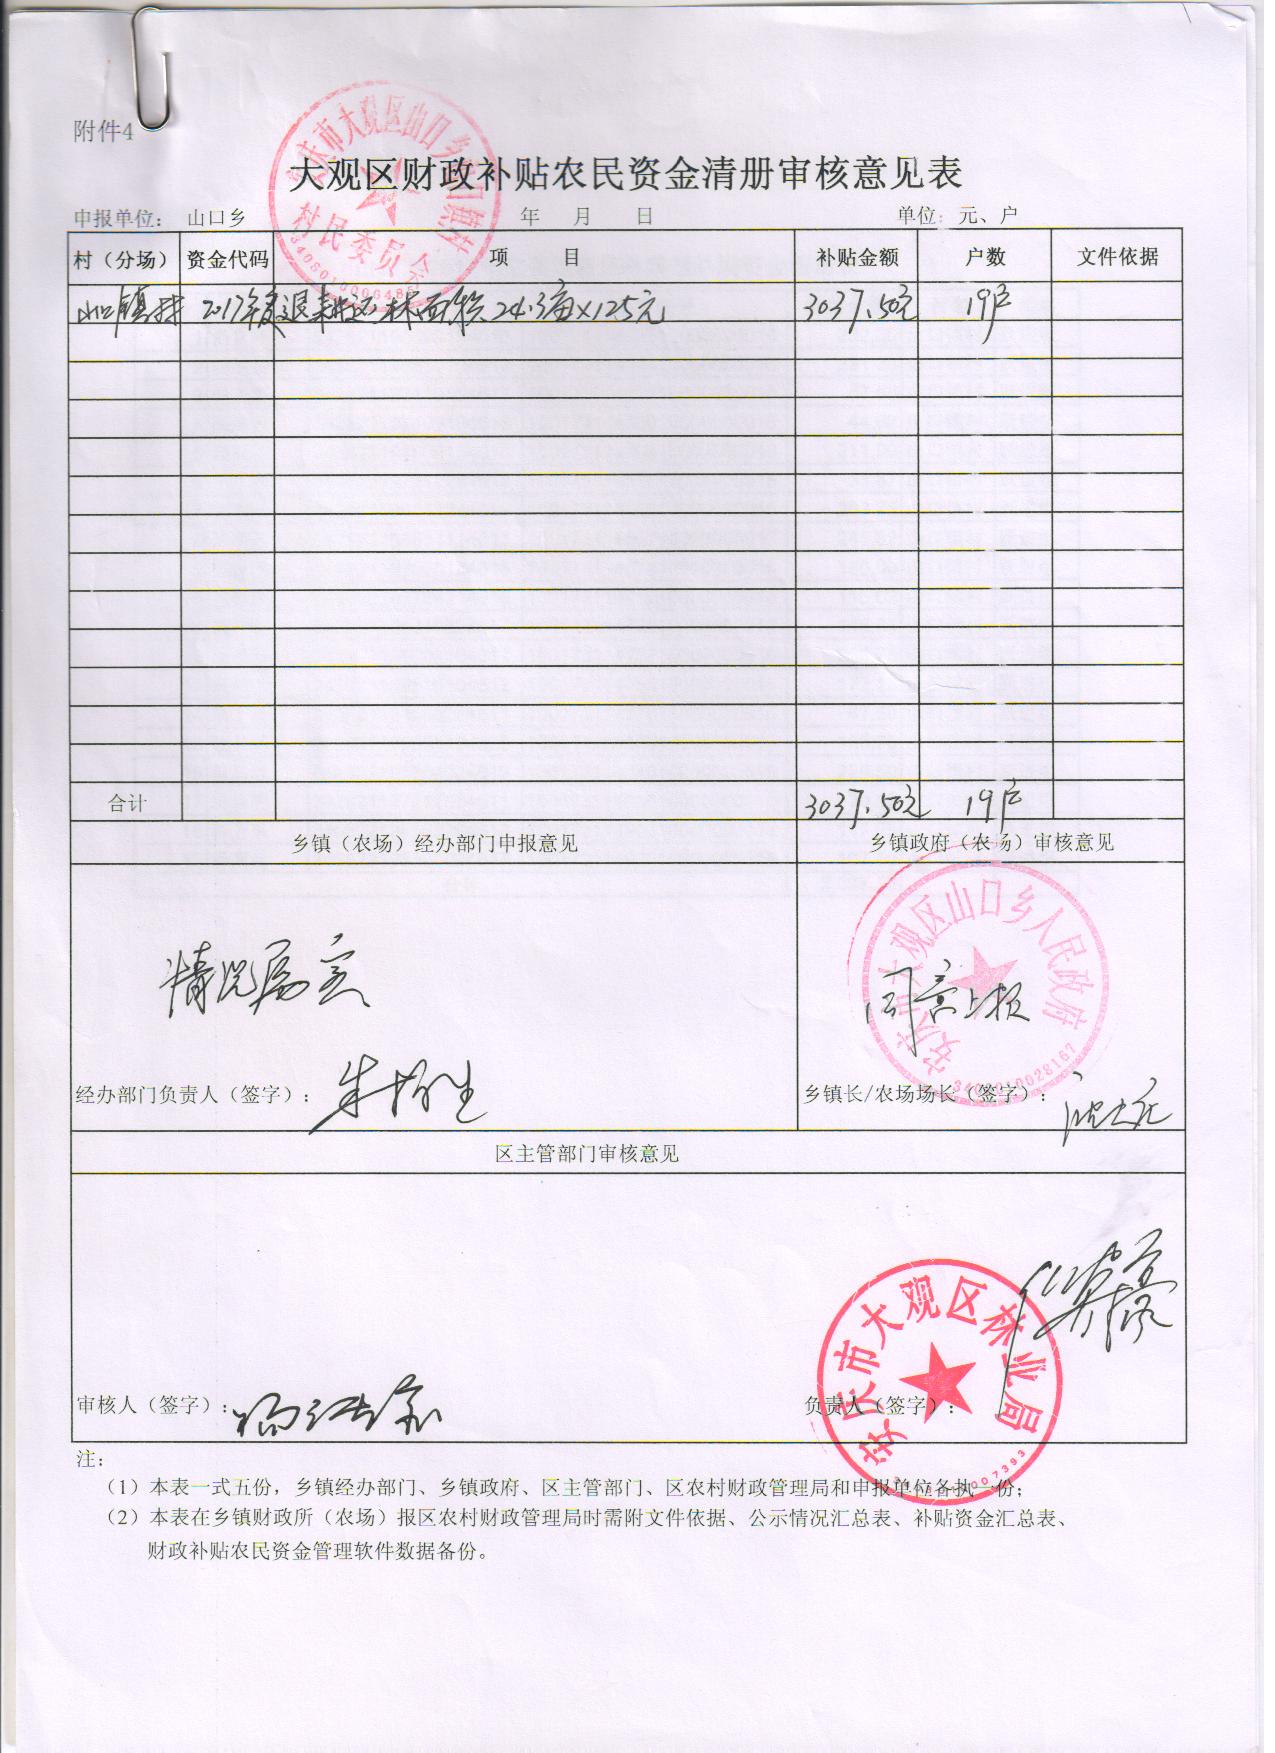 附件4
大观区财政补贴农民资金清册审核意见表
申报单位： 山口乡 年 月 日 单位：元、户
村（分场） 资金代码 项 目 补贴金额 户数 文件依据
山口镇村 2017年度退耕还林面积24.3亩×125元 3037.50元 19户
合计 3037.50元 19户
乡镇（农场）经办部门申报意见 乡镇政府（农场）审核意见
情况属实 同意上报
经办部门负责人（签字）： 乡镇长/农场场长（签字）：
区主管部门审核意见
审核人（签字）： 负责人（签字）：
注：
（1）本表一式五份，乡镇经办部门、乡镇政府、区主管部门、区农村财政管理局和申报单位各执一份；
（2）本表在乡镇财政所（农场）报区农村财政管理局时需附文件依据、公示情况汇总表、补贴资金汇总表、
财政补贴农民资金管理软件数据备份。
安庆市大观区山口乡人民政府
安庆市大观区林业局
村民委员会